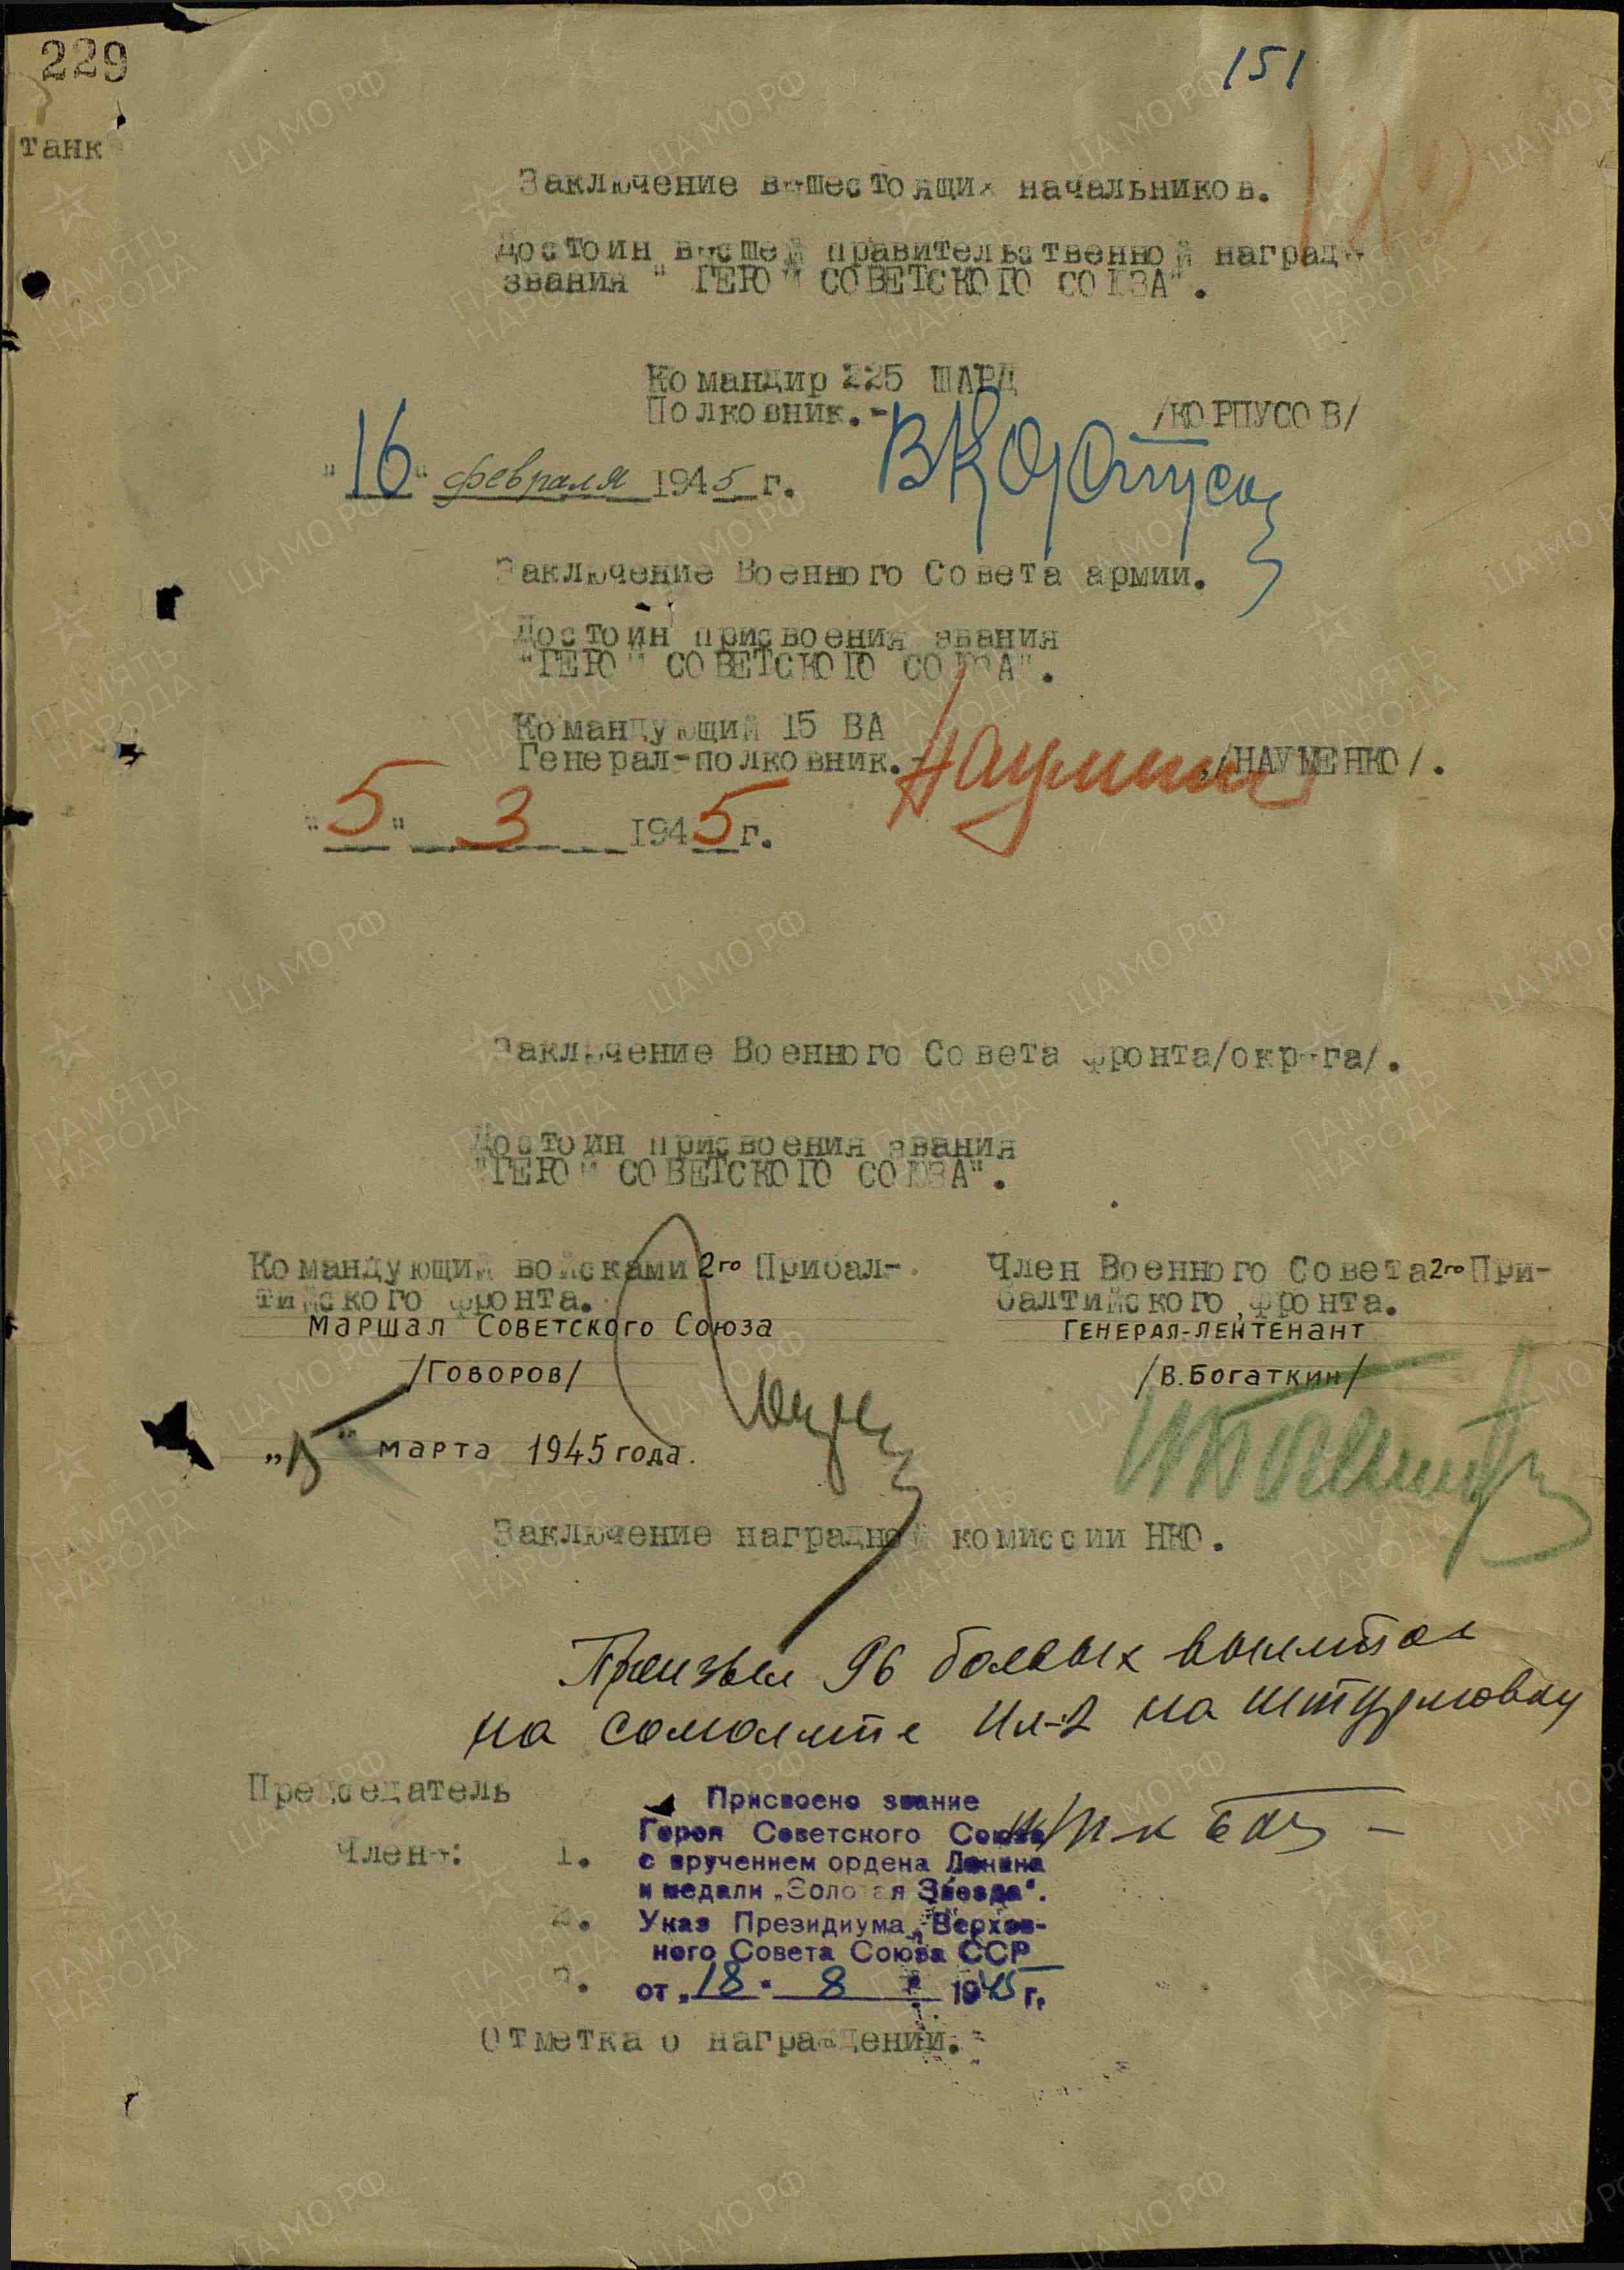 229
151
танк
Заключение вышестоящих начальников.
Достоин высшей правительственной награды
звания "ГЕРОЙ СОВЕТСКОГО СОЮЗА".
Командир 225 ШАРД
Полковник.-
/КОРПУСОВ/
"16" февраля 1945 г.
Заключение Военного Совета армии.
Достоин присвоения звания
"ГЕРОЙ СОВЕТСКОГО СОЮЗА".
Командующий 15 ВА
Генерал-полковник.-
/НАУМЕНКО/.
"5" 3 1945 г.
Заключение Военного Совета фронта/округа/.
Достоин присвоения звания
"ГЕРОЙ СОВЕТСКОГО СОЮЗА".
Командующий войсками 2го Прибал-
тийского фронта.
Маршал Советского Союза
/Говоров/
" " марта 1945 года.
Член Военного Совета 2го При-
балтийского фронта.
Генерал-лейтенант
/В.Богаткин/
Заключение наградной комиссии НКО.
Произвел 96 боевых вылетов
на самолете Ил-2 на штурмовку
пр-ка
Председатель
Члены:
1.
2.
3.
Присвоено звание
Героя Советского Союза
с вручением ордена Ленина
и медали „Золотая Звезда".
Указ Президиума Верхов-
ного Совета Союза ССР
от „18" 8 1945 г.
Отметка о награждении.
ЦА МО РФ
ПАМЯТЬ
НАРОДА